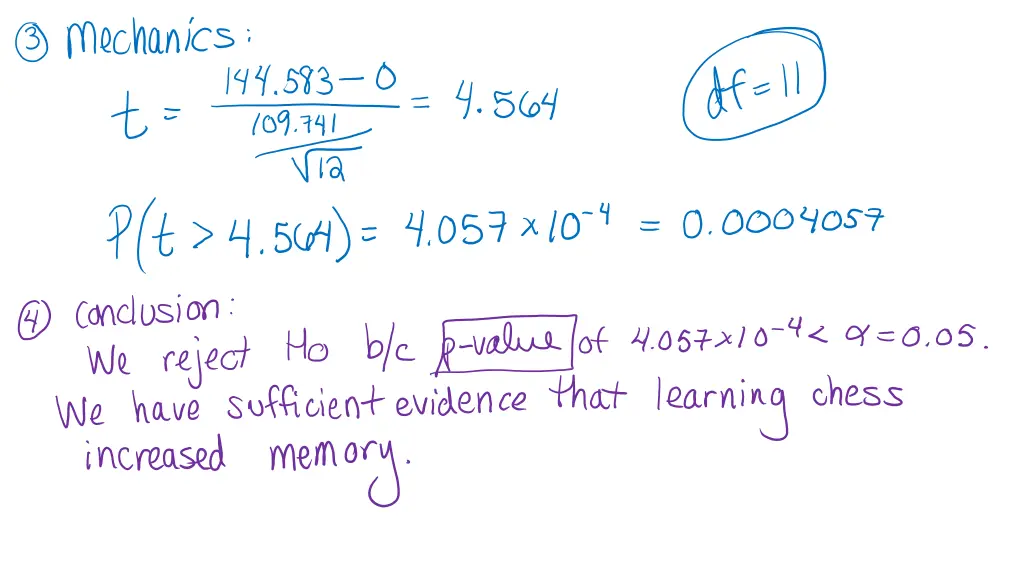 ③ Mechanics:
t = (144.583 - 0) / (109.741 / √12) = 4.564
df = 11
P(t > 4.564) = 4.057 × 10⁻⁴ = 0.0004057
④ Conclusion:
We reject Ho b/c p-value of 4.057×10⁻⁴ < α = 0.05.
We have sufficient evidence that learning chess
increased memory.